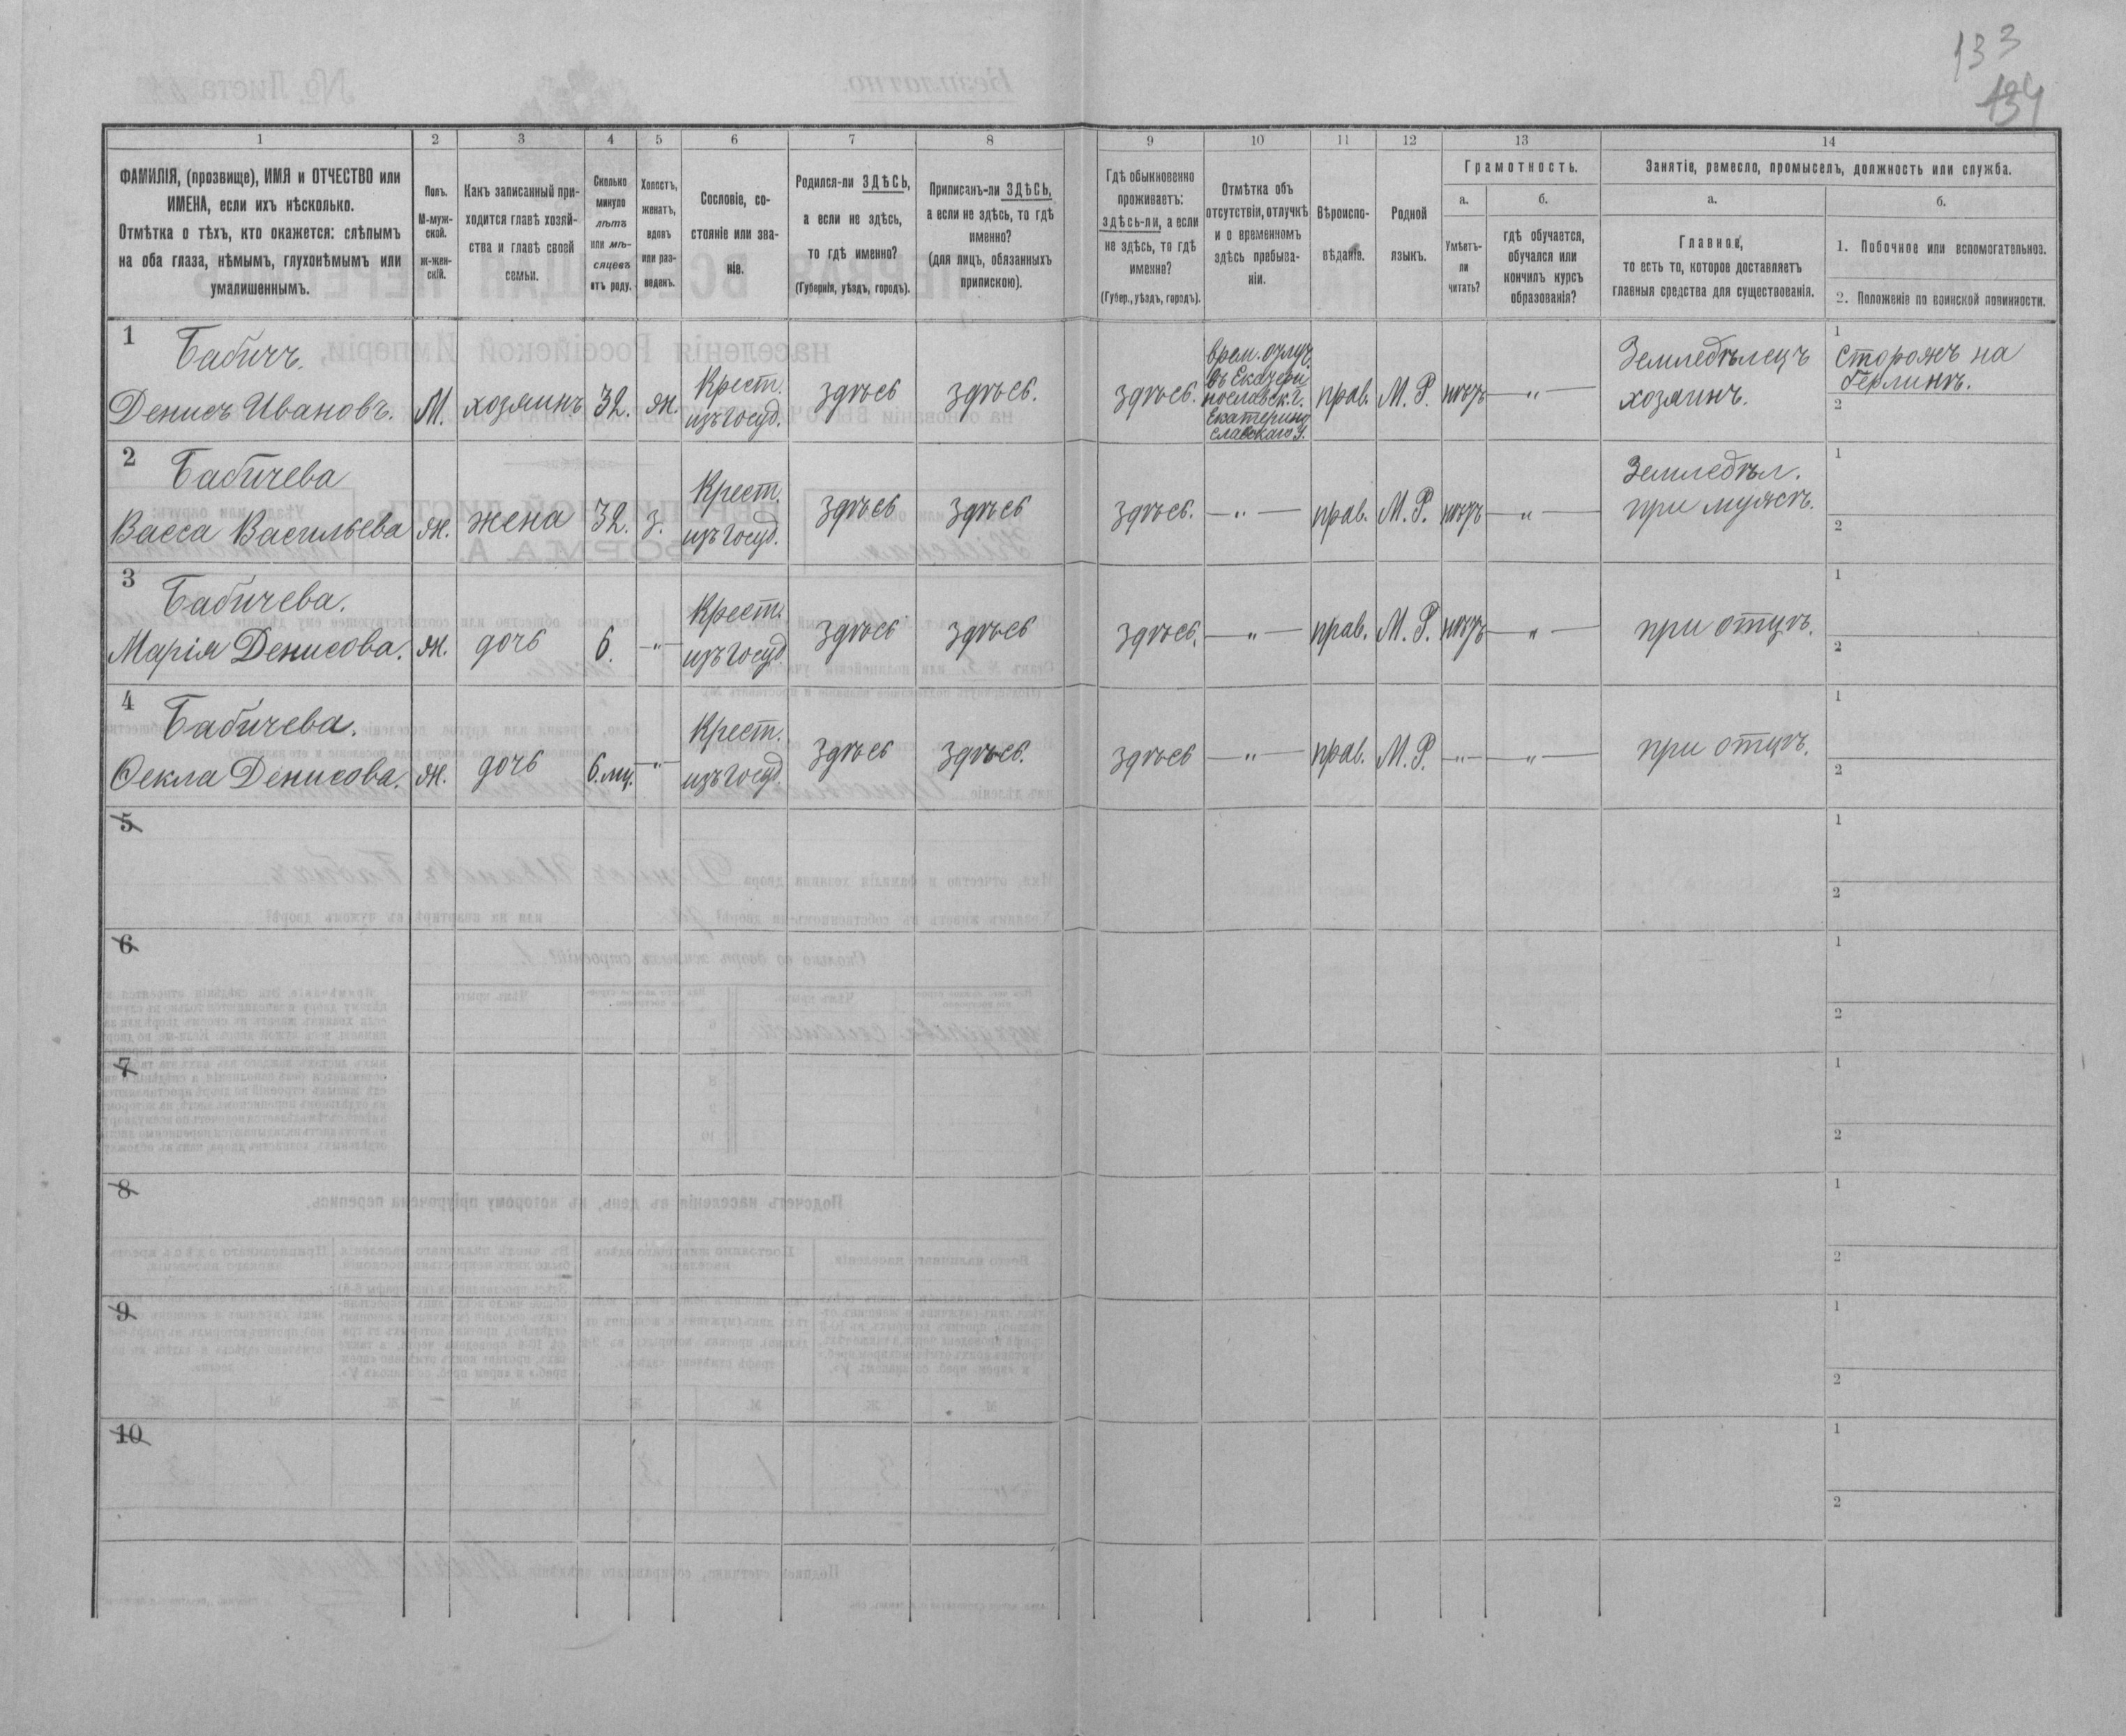 133
134
1 2 3 4 5 6 7 8 9 10 11 12 13 14
ФАМИЛІЯ, (прозвище), ИМЯ и ОТЧЕСТВО или
ИМЕНА, если ихъ нѣсколько.
Отмѣтка о тѣхъ, кто окажется: слѣпымъ
на оба глаза, нѣмымъ, глухонѣмымъ или
умалишеннымъ.
Полъ.
М-муж-
ской.
ж-жен-
скій.
Какъ записанный при-
ходится главѣ хозяй-
ства и главѣ своей
семьи.
Сколько
минуло
лѣтъ
или мѣ-
сяцевъ
отъ роду.
Холостъ,
женатъ,
вдовъ
или раз-
веденъ.
Сословіе, со-
стояніе или зва-
ніе.
Родился-ли ЗДѢСЬ,
а если не здѣсь,
то гдѣ именно?
(Губернія, уѣздъ, городъ).
Приписанъ-ли ЗДѢСЬ,
а если не здѣсь, то гдѣ
именно?
(для лицъ, обязанныхъ
припискою).
Гдѣ обыкновенно
проживаетъ:
здѣсь-ли, а если
не здѣсь, то гдѣ
именно?
(Губер., уѣздъ, городъ).
Отмѣтка объ
отсутствіи, отлучкѣ
и о временномъ
здѣсь пребыва-
ніи.
Вѣроиспо-
вѣданіе.
Родной
языкъ.
Грамотность.
а.
Умѣетъ-
ли
читать?
б.
гдѣ обучается,
обучался или
кончилъ курсъ
образованія?
Занятіе, ремесло, промыселъ, должность или служба.
а.
Главное,
то есть то, которое доставляетъ
главныя средства для существованія.
б.
1. Побочное или вспомогательное.
2. Положеніе по воинской повинности.
1
Бабичъ.
Денисъ Ивановъ.
М.
хозяинъ
32.
ж.
Крест.
изъ госуд.
здѣсь
здѣсь.
здѣсь.
врем. отлуч.
въ Екатери
нославск. г.
Екатерино
славскаго у.
прав.
М. Р.
нѣтъ
— „ —
Земледѣлецъ
хозяинъ.
1
Сторожъ на
2
2
Бабичева
Васса Васильева
ж.
жена
32.
з.
Крест.
изъ госуд.
здѣсь
здѣсь
здѣсь.
— „ —
прав.
М. Р.
нѣтъ
— „ —
Земледѣл.
при мужѣ.
1
2
3
Бабичева.
Марія Денисова.
ж.
дочь
6.
— „ —
Крест.
изъ госуд.
здѣсь
здѣсь
здѣсь.
— „ —
прав.
М. Р.
нѣтъ
— „ —
при отцѣ.
1
2
4
Бабичева.
Ѳекла Денисова.
ж.
дочь
6. мц.
— „ —
Крест.
изъ госуд.
здѣсь
здѣсь.
здѣсь
— „ —
прав.
М. Р.
— „ —
— „ —
при отцѣ.
1
2
5
1
2
6
1
2
7
1
2
8
1
2
9
1
2
10
1
2